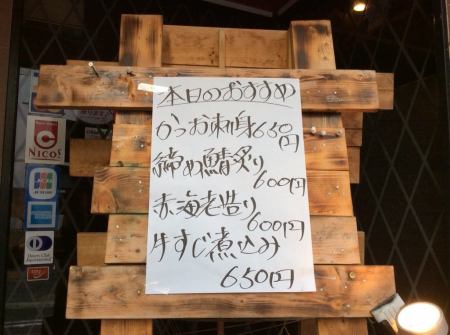 本日のおすすめ
かつお刺身650円
締め鯖炙り
600円
赤海老造り
600円
牛すじ煮込み
650円
NICOS
JCB
Diners Club
International